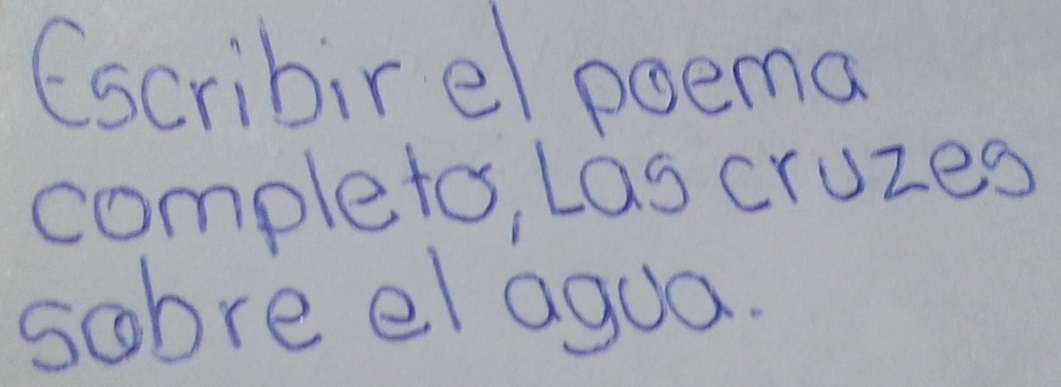 Escribir el poema
completo, Las cruzes
sobre el agua.